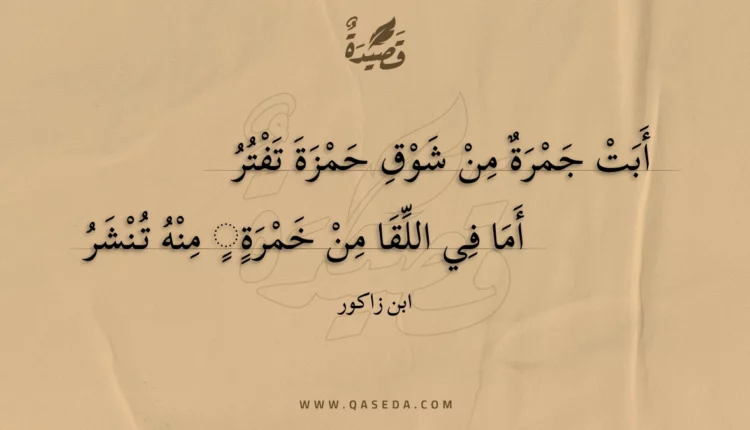 قَصِيْدَةٌ
أَبَتْ جَمْرَةٌ مِنْ شَوْقِ حَمْزَةَ تَفْتُرُ
أَمَا فِي اللِّقَا مِنْ خَمْرَةٍ ٍ مِنْهُ تُنْشَرُ
ابن زاكور
WWW.QASEDA.COM